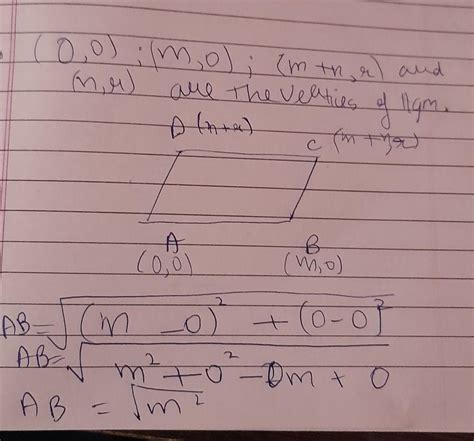 (0,0) ; (m,0) ; (m+n,r) and
(n,r) are the verties of llgm.
D (n+r)
C (m+n,r)
A
(0,0)
B
(m,0)
AB=√(m -0)² + (0-0)²
AB=√m²+0²-0m+0
AB = √m²